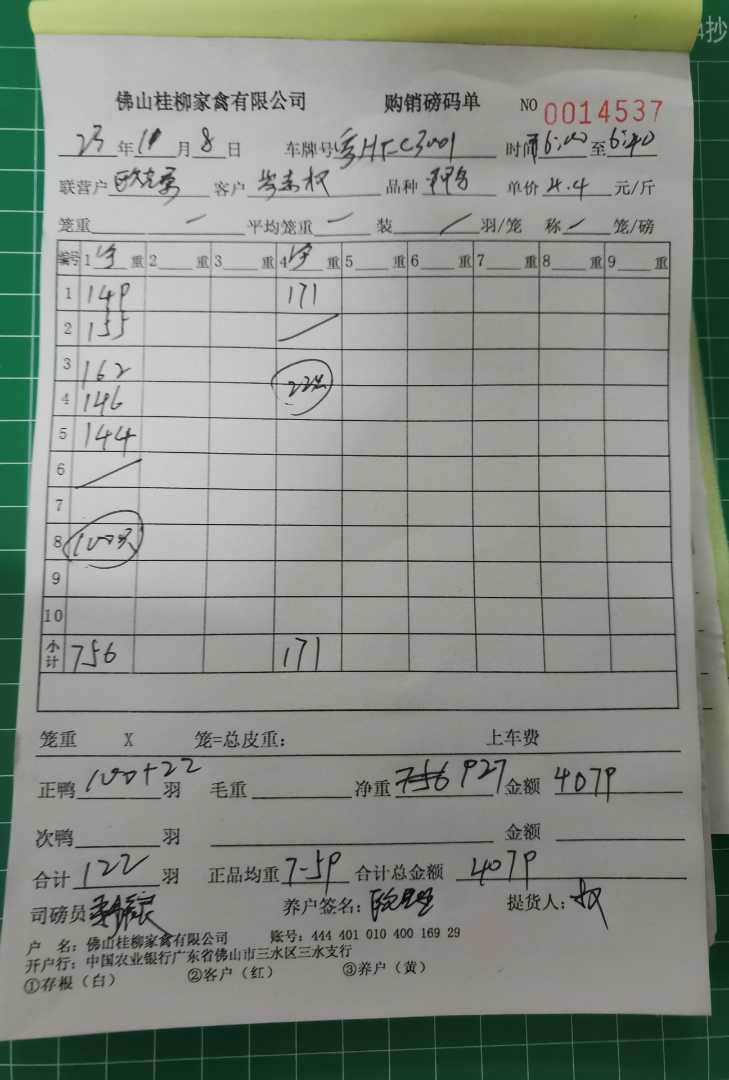 抄
佛山桂柳家禽有限公司 购销磅码单 NO 0014537
23 年 10 月 8 日 车牌号 时间 6:00 至 6:40
联营户 客户 品种 单价 4.4 元/斤
笼重 — 平均笼重 — 装 / 羽/笼 称 / 笼/磅
编号 1 净 重 2 重 3 重 4 净 重 5 重 6 重 7 重 8 重 9 重
1 149 171
2 155
3 162
4 146 22只
5 144
6
7
8 100只
9
10
小计 756 171
笼重 X 笼=总皮重: 上车费
正鸭 100+22 羽 毛重 净重 756 927 金额 4079
次鸭 羽 金额
合计 122 羽 正品均重 7-59 合计总金额 4079
司磅员 养户签名: 提货人: 权
户 名: 佛山桂柳家禽有限公司 账号: 444 401 010 400 169 29
开户行: 中国农业银行广东省佛山市三水区三水支行
①存根（白） ②客户（红） ③养户（黄）